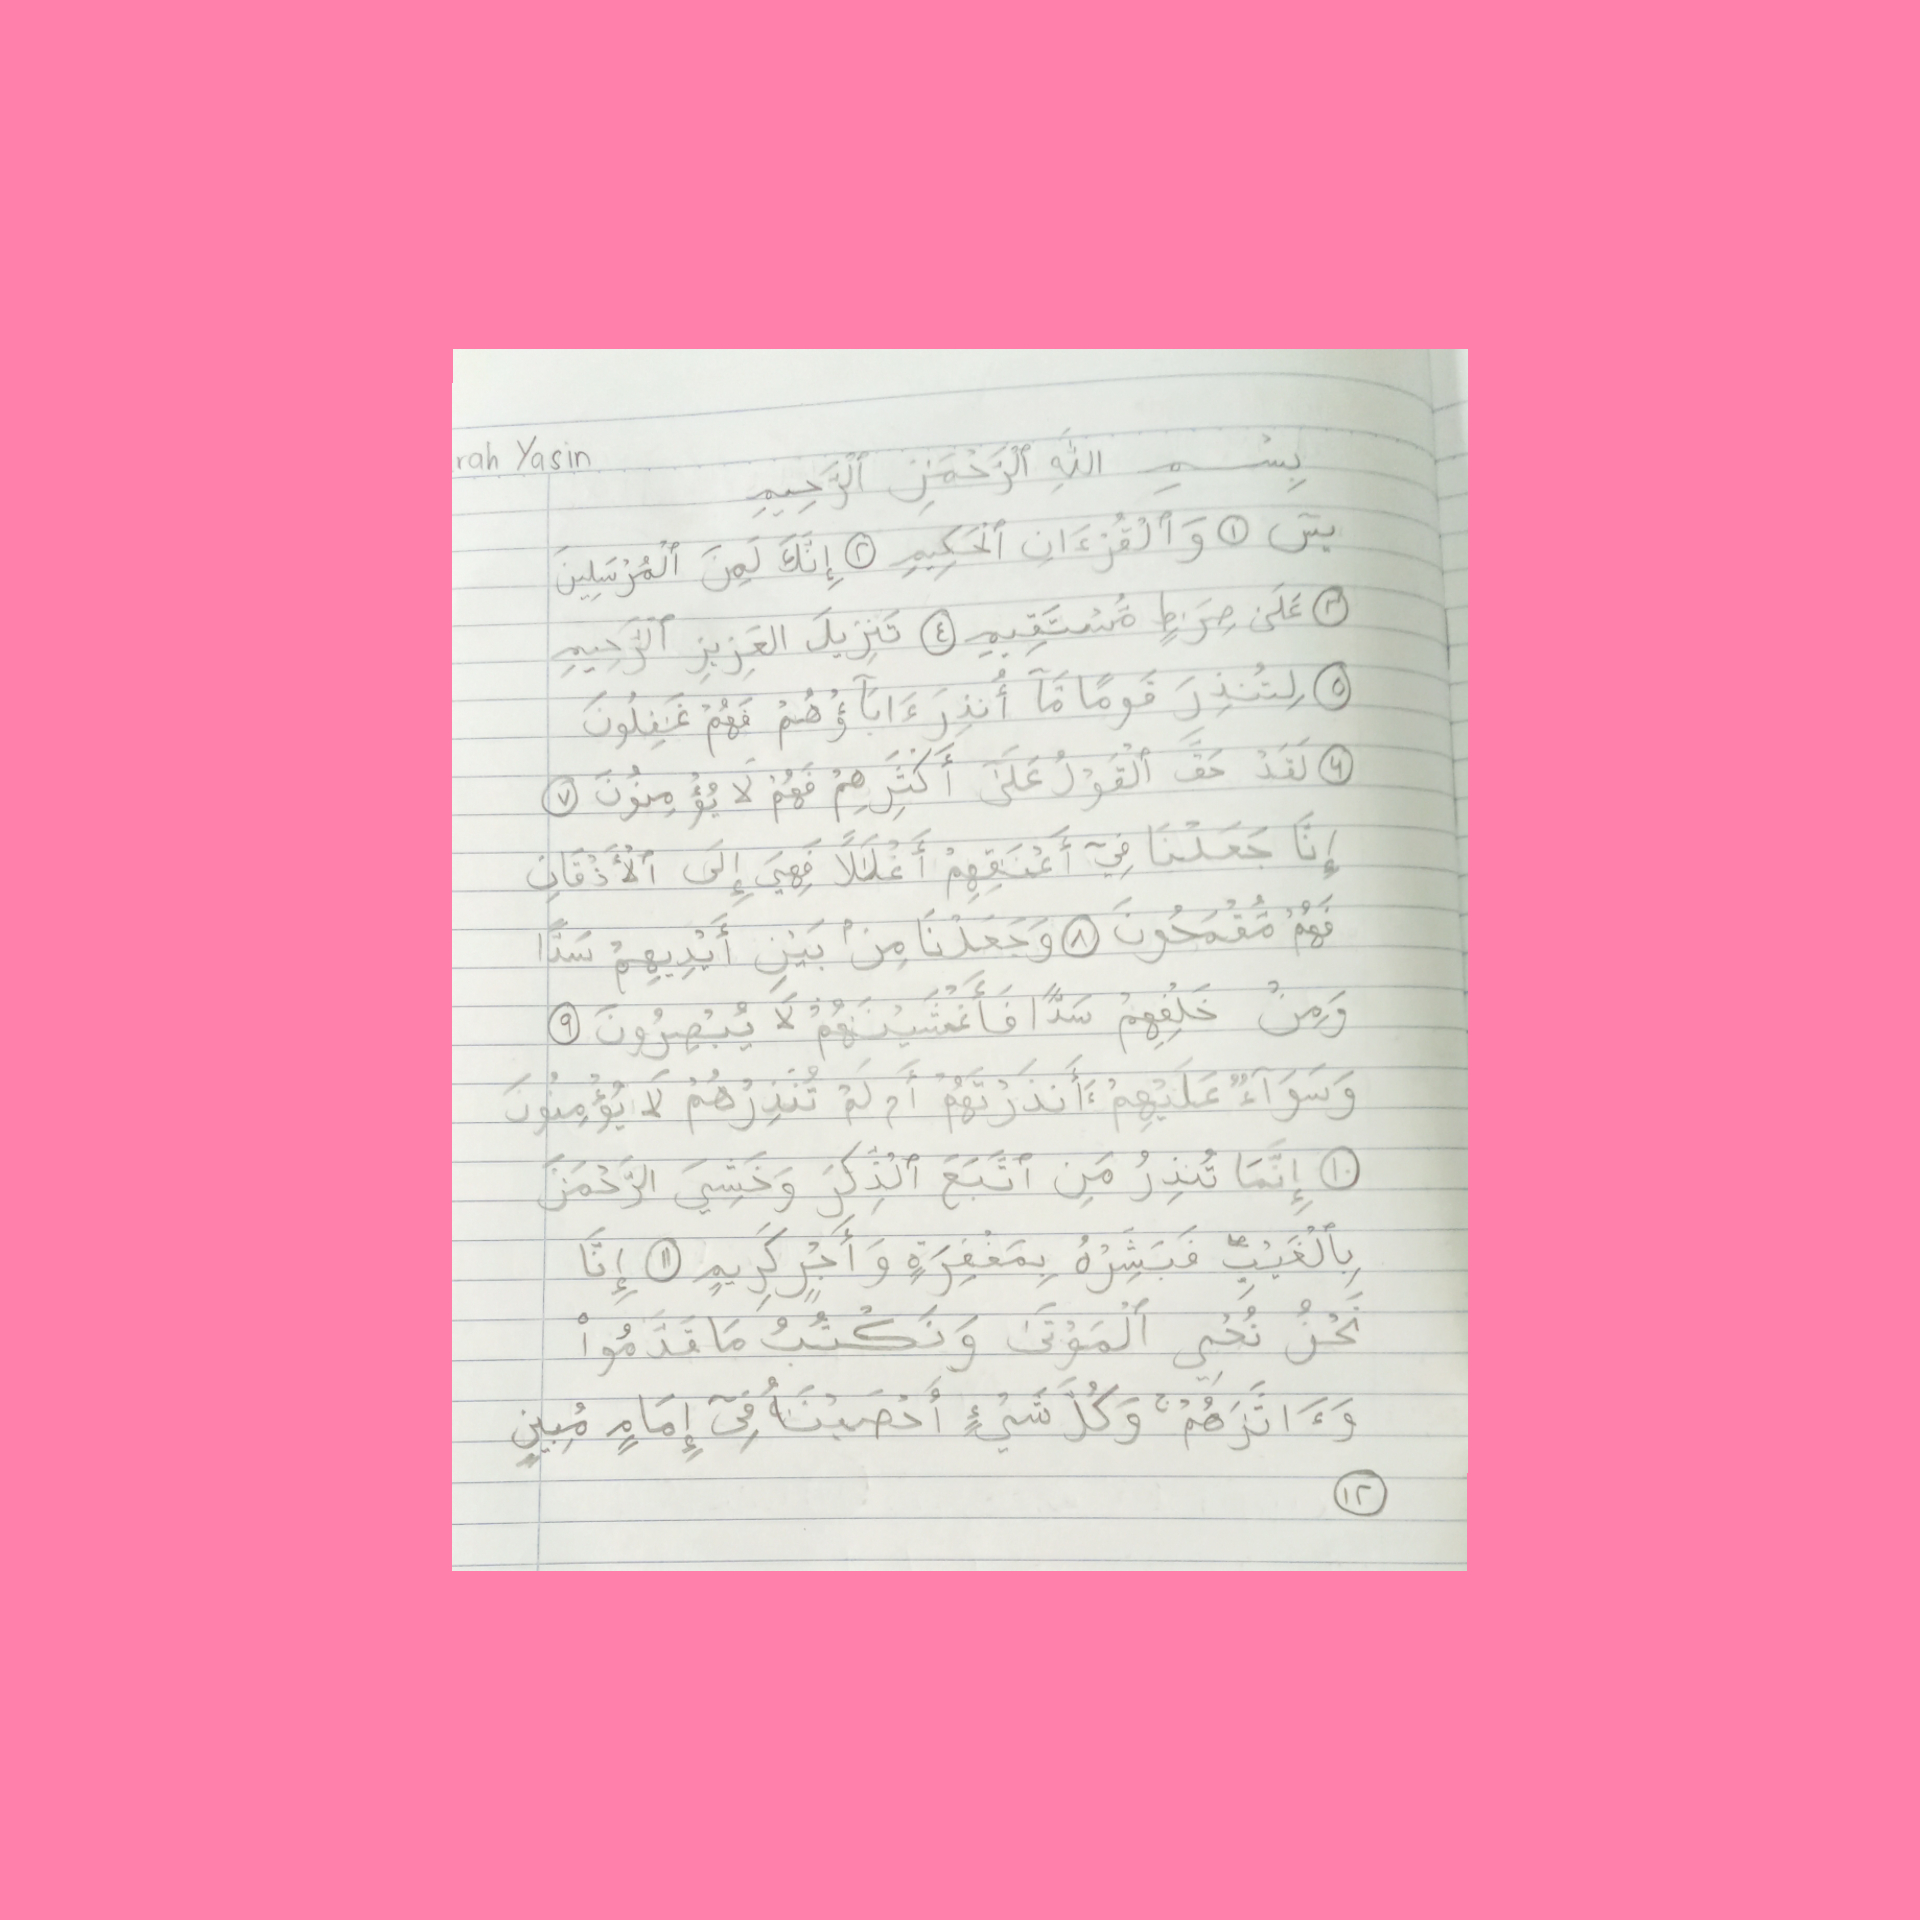 rah Yasin
بِسْمِ اللَّهِ ٱلرَّحْمَٰنِ ٱلرَّحِيمِ
يسٓ ١ وَٱلْقُرْءَانِ ٱلْحَكِيمِ ٢ إِنَّكَ لَمِنَ ٱلْمُرْسَلِينَ
٣ عَلَىٰ صِرَٰطٍ مُّسْتَقِيمٍ ٤ تَنزِيلَ العَزِيزِ ٱلرَّحِيمِ
٥ لِتُنذِرَ قَومًا مَّآ أُنذِرَ ءَابَآؤُهُمْ فَهُمْ غَٰفِلُونَ
٦ لَقَدْ حَقَّ ٱلْقَوْلُ عَلَىٰٓ أَكْثَرِهِمْ فَهُمْ لَا يُؤْمِنُونَ ٧
إِنَّا جَعَلْنَا فِيٓ أَعْنَٰقِهِمْ أَغْلَٰلًا فَهِيَ إِلَى ٱلْأَذْقَانِ
فَهُمْ مُّقْمَحُونَ ٨ وَجَعَلْنَا مِنۢ بَيْنِ أَيْدِيهِمْ سَدًّا
وَمِنْ خَلْفِهِمْ سَدًّا فَأَغْشَيْنَٰهُمْ لَا يُبْصِرُونَ ٩
وَسَوَآءٌ عَلَيْهِمْ ءَأَنذَرْتَهُمْ أَمْ لَمْ تُنْذِرْهُمْ لَا يُؤْمِنُونَ
١٠ إِنَّمَا تُنذِرُ مَنِ ٱتَّبَعَ ٱلذِّكْرَ وَخَشِيَ الرَّحْمَٰنَ
بِٱلْغَيْبِۖ فَبَشِّرْهُ بِمَغْفِرَةٍ وَأَجْرٍ كَرِيمٍ ١١ إِنَّا
نَحْنُ نُحْيِي ٱلْمَوْتَىٰ وَنَكْتُبُ مَا قَدَّمُوا۟
وَءَاثَٰرَهُمْۚ وَكُلَّ شَيْءٍ أَحْصَيْنَٰهُ فِيٓ إِمَامٍ مُبِينٍ
١٢